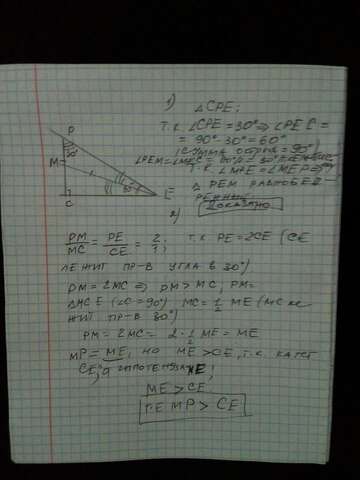 1)
△CPE;
т.к. ∠CPE = 30° ⇒ ∠PEC =
= 90° - 30° = 60°
(сумма остр. = 90°)
∠PEM = ∠MEC = 60°/2 = 30°
т.к. ∠MPE = ∠MEP ⇒
△ PEM равнобед
ренный
доказано
P
30°
M
C
E
30°
2)
PM/MC = PE/CE = 2/1; т.к. PE = 2CE (CE
лежит пр-в угла в 30°)
PM = 2MC ⇒ PM > MC, PM =
△MCE (∠C = 90°) MC = 1/2 ME (MC ле
жит пр-в 30°)
PM = 2MC = 2 · 1/2 ME = ME
MP = ME, но ME > CE, т.к. катет
CE, а гипотенуза ME;
ME > CE
т.е MP > CE